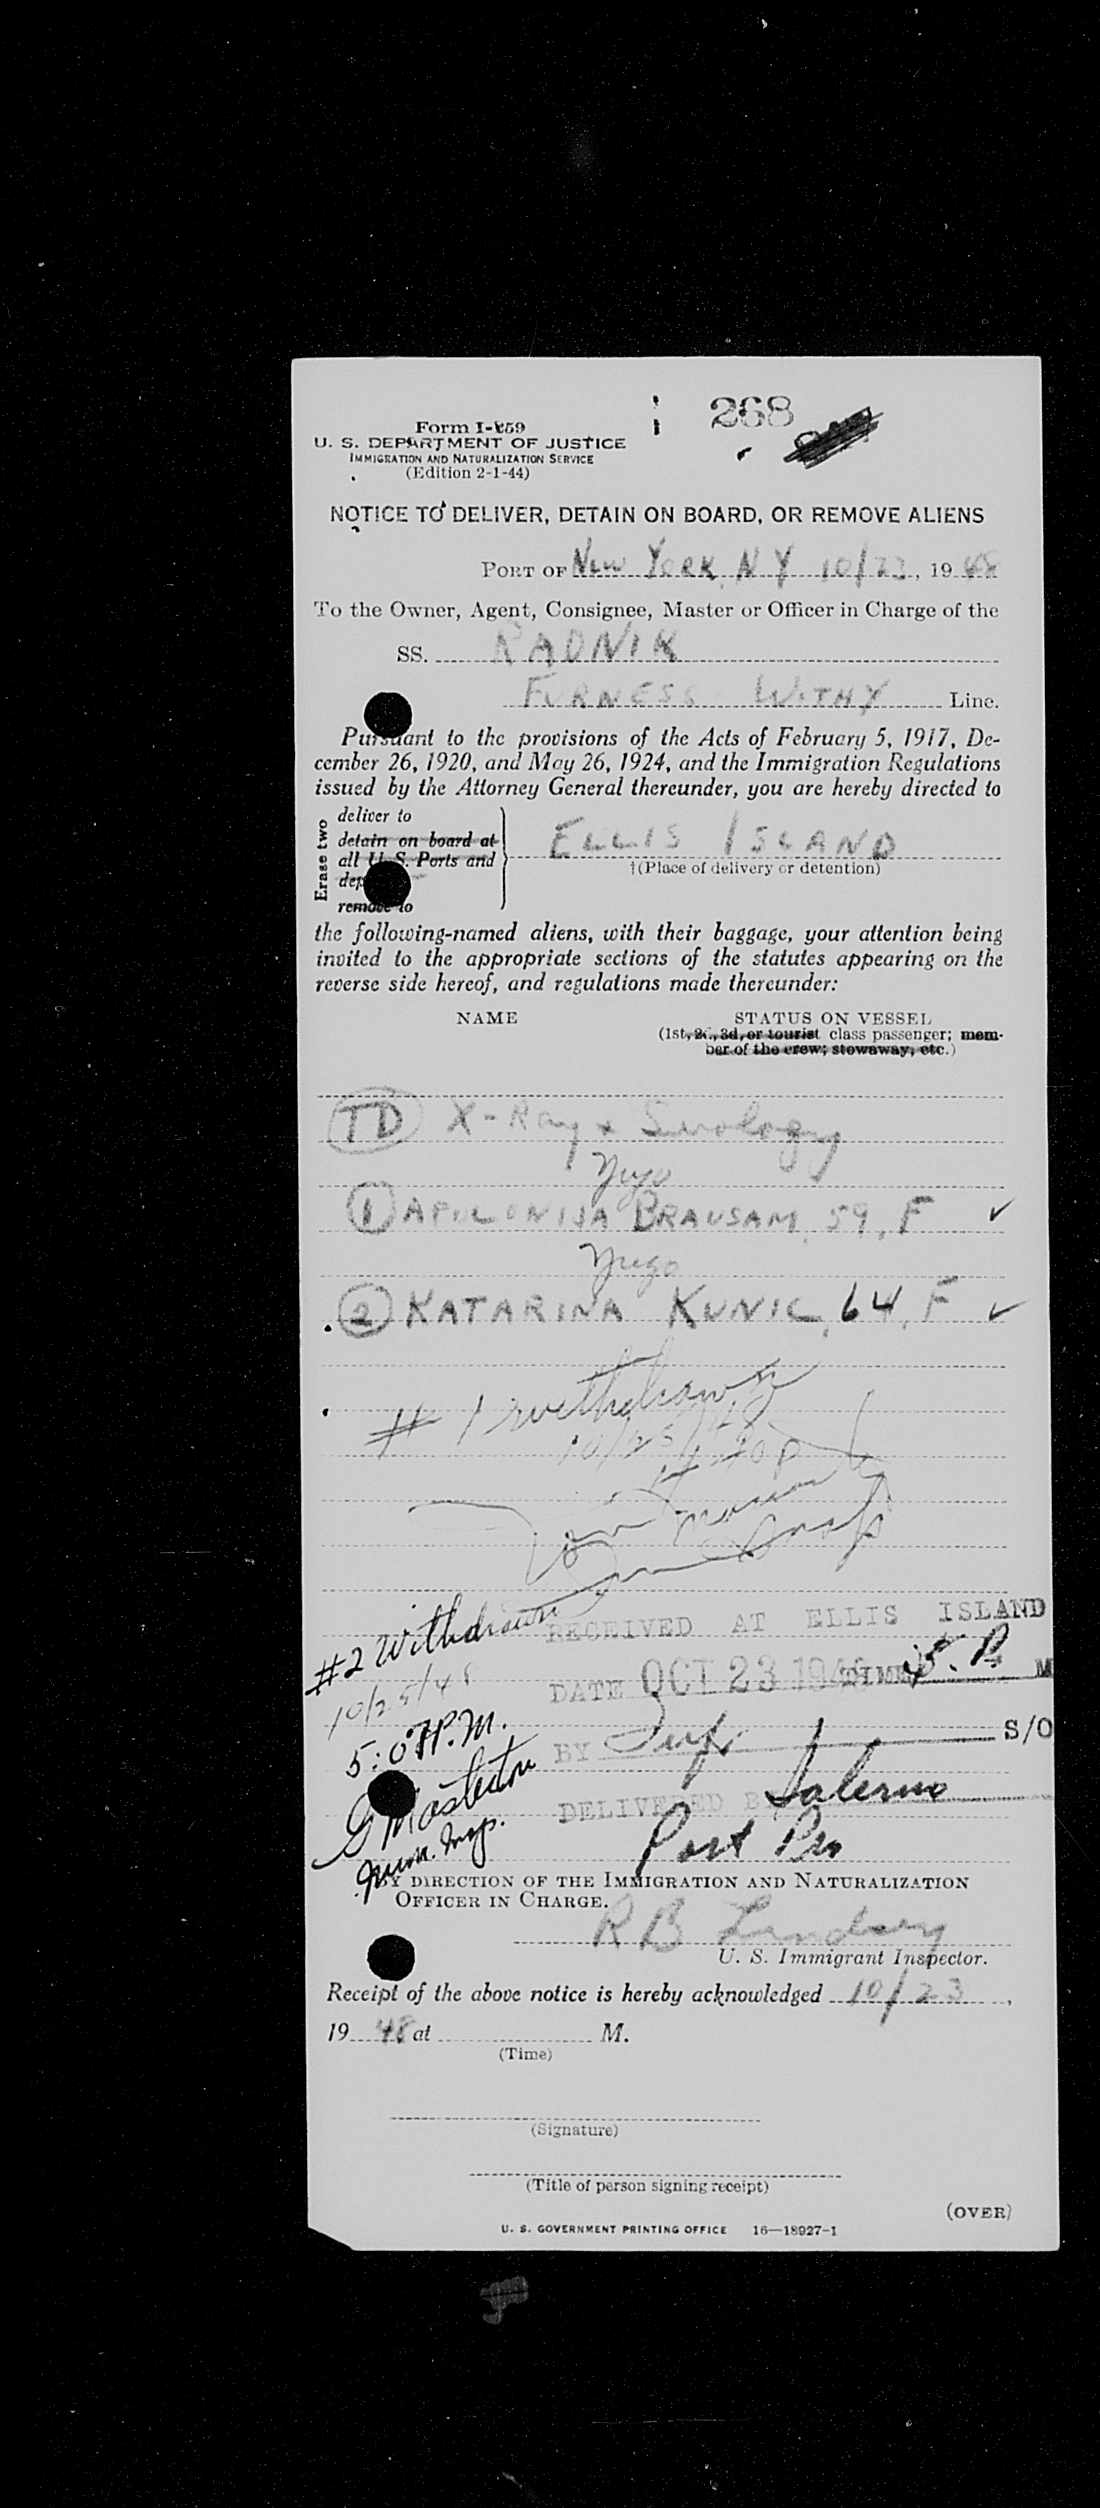 268
Form I-259
U. S. DEPARTMENT OF JUSTICE
IMMIGRATION AND NATURALIZATION SERVICE
(Edition 2-1-44)
NOTICE TO DELIVER, DETAIN ON BOARD, OR REMOVE ALIENS
PORT OF New York, N Y 10/23, 1948
To the Owner, Agent, Consignee, Master or Officer in Charge of the
SS. RADNIK
FURNESS WITHY Line.
Pursuant to the provisions of the Acts of February 5, 1917, De-
cember 26, 1920, and May 26, 1924, and the Immigration Regulations
issued by the Attorney General thereunder, you are hereby directed to
Erase two
deliver to
detain on board at
all U. S. Ports and
remove to
ELLIS ISLAND
†(Place of delivery or detention)
the following-named aliens, with their baggage, your attention being
invited to the appropriate sections of the statutes appearing on the
reverse side hereof, and regulations made thereunder:
NAME STATUS ON VESSEL
(1st, 2d, 3d, or tourist class passenger; mem-
ber of the crew; stowaway, etc.)
TD X-Ray + Serology
Yugo
1 APOLONIJA BRAUSAM, 59, F ✓
Yugo
2 KATARINA KUNIC, 64, F ✓
# 1 withdrawn
10/25/48
#2 Withdrawn
10/25/48
5:07 P.M.
G Masterton
Imm. Insp.
RECEIVED AT ELLIS ISLAND
DATE OCT 23 1948 TIME 5. P. M
BY S/O
DELIVERED BY Salerno
Port Pro
BY DIRECTION OF THE IMMIGRATION AND NATURALIZATION
OFFICER IN CHARGE.
R B Lindsey
U. S. Immigrant Inspector.
Receipt of the above notice is hereby acknowledged 10/23,
1948 at M.
(Time)
(Signature)
(Title of person signing receipt)
(OVER)
U. S. GOVERNMENT PRINTING OFFICE 16—18927-1